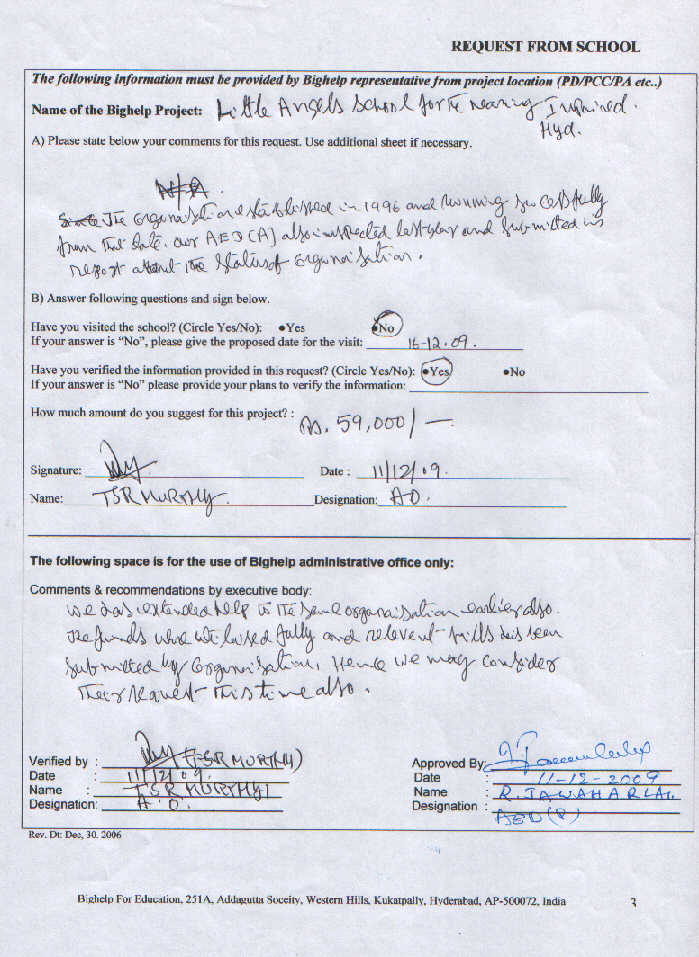 REQUEST FROM SCHOOL
The following information must be provided by Bighelp representative from project location (PD/PCC/PA etc..)
Name of the Bighelp Project: Little Angels School for the Hearing Impaired.
Hyd.
A) Please state below your comments for this request. Use additional sheet if necessary.
N/A.
The organisation established in 1996 and running successfully
from that date. our AED (A) also inspected last year and submitted his
report about the status of organisation.
B) Answer following questions and sign below.
Have you visited the school? (Circle Yes/No): •Yes •No
If your answer is “No”, please give the proposed date for the visit: 16-12-09.
Have you verified the information provided in this request? (Circle Yes/No): •Yes •No
If your answer is “No” please provide your plans to verify the information:
How much amount do you suggest for this project? : Rs. 59,000/-
Signature: Date : 11/12/09.
Name: TSR MURTHY. Designation: AO.
The following space is for the use of Bighelp administrative office only:
Comments & recommendations by executive body:
We has extended help to the same organisation earlier also.
The funds were utilised fully and relevent bills has been
submitted by organisation, Hence we may consider
their request this time also.
Verified by : (TSR MURTHY) Approved By:
Date : 11/12/09. Date : 11-12-2009
Name : TSR MURTHY Name : R. JAWAHARLAL
Designation: A.O. Designation : AED (P)
Rev. Dt: Dec, 30. 2006
Bighelp For Education, 251A, Addagutta Soceity, Western Hills, Kukatpally, Hyderabad, AP-500072, India 3